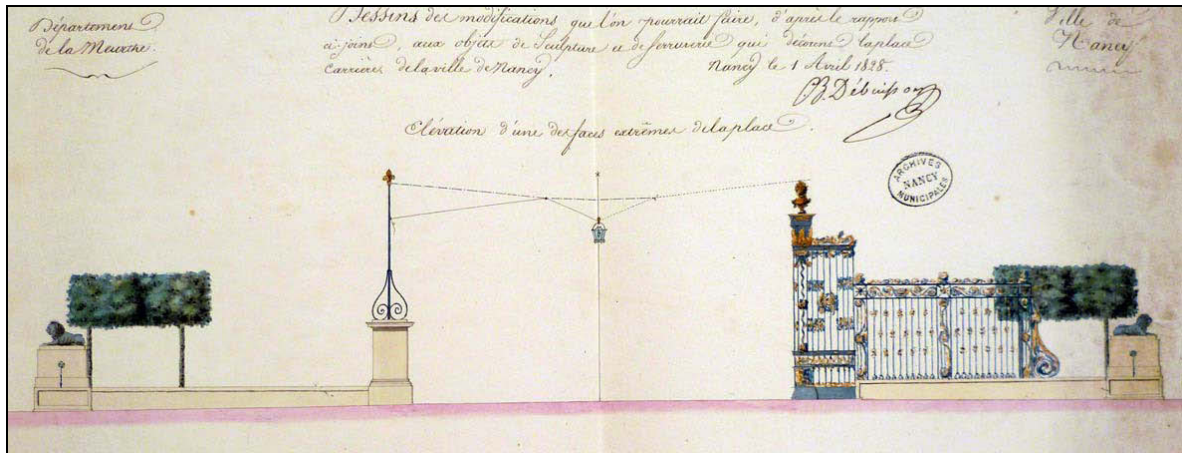 Département
de la Meurthe.
Dessins des modifications que l'on pourrait faire, d'après le rapport
ci-joint, aux objets de Sculpture et de Serrurerie qui décorent la place
Carrière de la ville de Nancy.
Nancy le 1 Avril 1828.
Ville de
Nancy
Élévation d'une des faces extrêmes de la place.
ARCHIVES
NANCY
MUNICIPALES